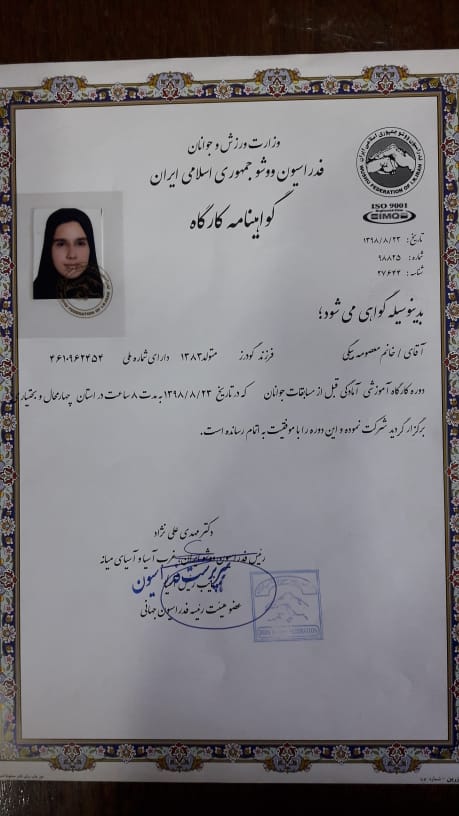 وزارت ورزش و جوانان
فدراسیون ووشو جمهوری اسلامی ایران
گواهینامه کارگاه
فدراسیون ووشو جمهوری اسلامی ایران
WUSHU FEDERATION OF I.R.IRAN
ISO 9001
تاریخ: ۱۳۹۸/۸/۲۳
شماره: ۹۸۸۲۵
شناسه: ۲۷۶۴۴
بدینوسیله گواهی می شود؛
آقای / خانم معصومه بیگی فرزند گودرز متولد ۱۳۸۳ دارای شماره ملی ۴۶۱۰۹۶۲۴۵۴
دوره کارگاه آموزشی آمادگی قبل از مسابقات جوانان که در تاریخ ۱۳۹۸/۸/۲۳ به مدت ۸ ساعت در استان چهارمحال و بختیاری
برگزار گردید شرکت نموده و این دوره را با موفقیت به اتمام رسانده است.
دکتر مهدی علی نژاد
رئیس فدراسیون ووشو ایران، غرب آسیا و آسیای میانه
سرپرست فدراسیون
عضو هیئت رئیسه فدراسیون جهانی